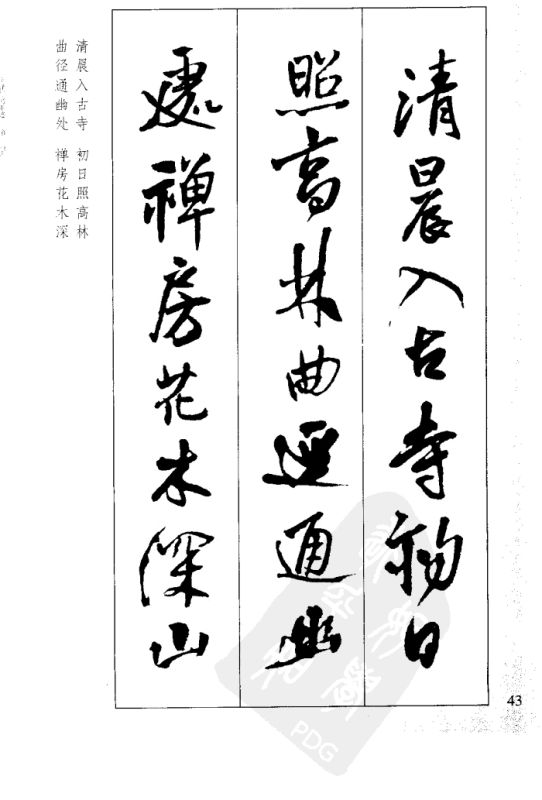 清晨入古寺初日
照高林曲迳通幽
處禅房花木深山
清晨入古寺 初日照高林
曲径通幽处 禅房花木深
43
PDG